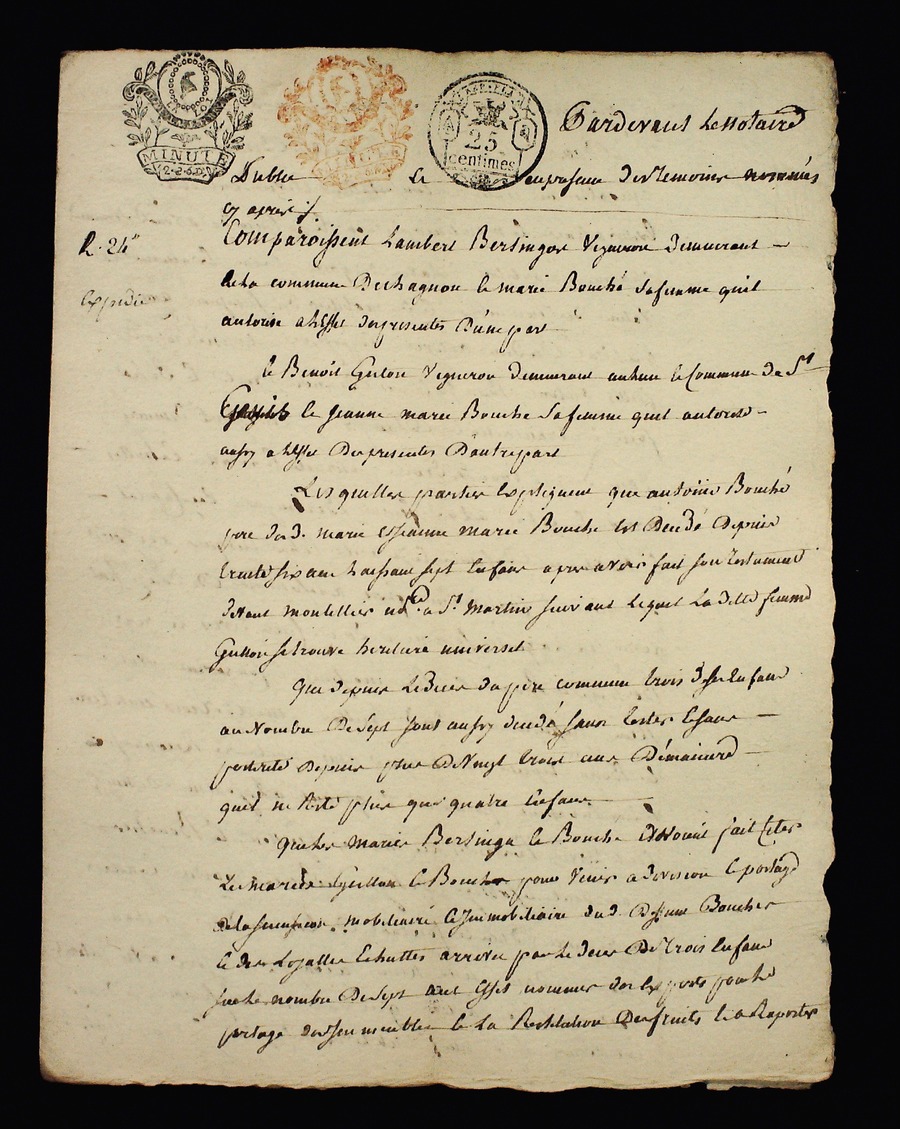 MINUTE
25
centimes
Pardevant le Notaire
Public et en presence des temoins nommés
cy apres
R. 24
Expedié
Comparoissent Lambert Bersingos Vigneron Demeurant
de la commune De Chagnon & marie Bouché sa femme quil
autorise a leffet des presentes D'une part
& Benoit Guiton Vigneron demeurant en la Commune de St
& Jeanne marie Bouche sa femme quil autorise
aussy a leffet Des presentes D'autre part
Les quelles parties Expliquent que antoine Bouché
pere des d. marie et Jeanne marie Bouche est Decedé Depuis
trente six ans Laissant sept Enfans apres avoir fait son testament
devant montellier a St martin suivant lequel La ditte femme
Guitton se trouve heritiere universel
Que depuis Le Deces du pere commun trois de ses Enfans
au Nombre De sept sont aussy decedé sans tester & sans
posterité Depuis plus De Vingt trois ans De maniere
quil ne reste plus que quatre Enfans
Que les Mariés & Bouche avoient fait Citer
Les mariés & Bouche pour Venir a division & partage
de la succession mobiliaire & immobiliaire du d. Bouche
& des Echuttes arrivée par le deces De trois Enfans
sur le nombre De sept nommer des Experts pour le
partage des immeubles & La Restitution Des fruits & a Raporter